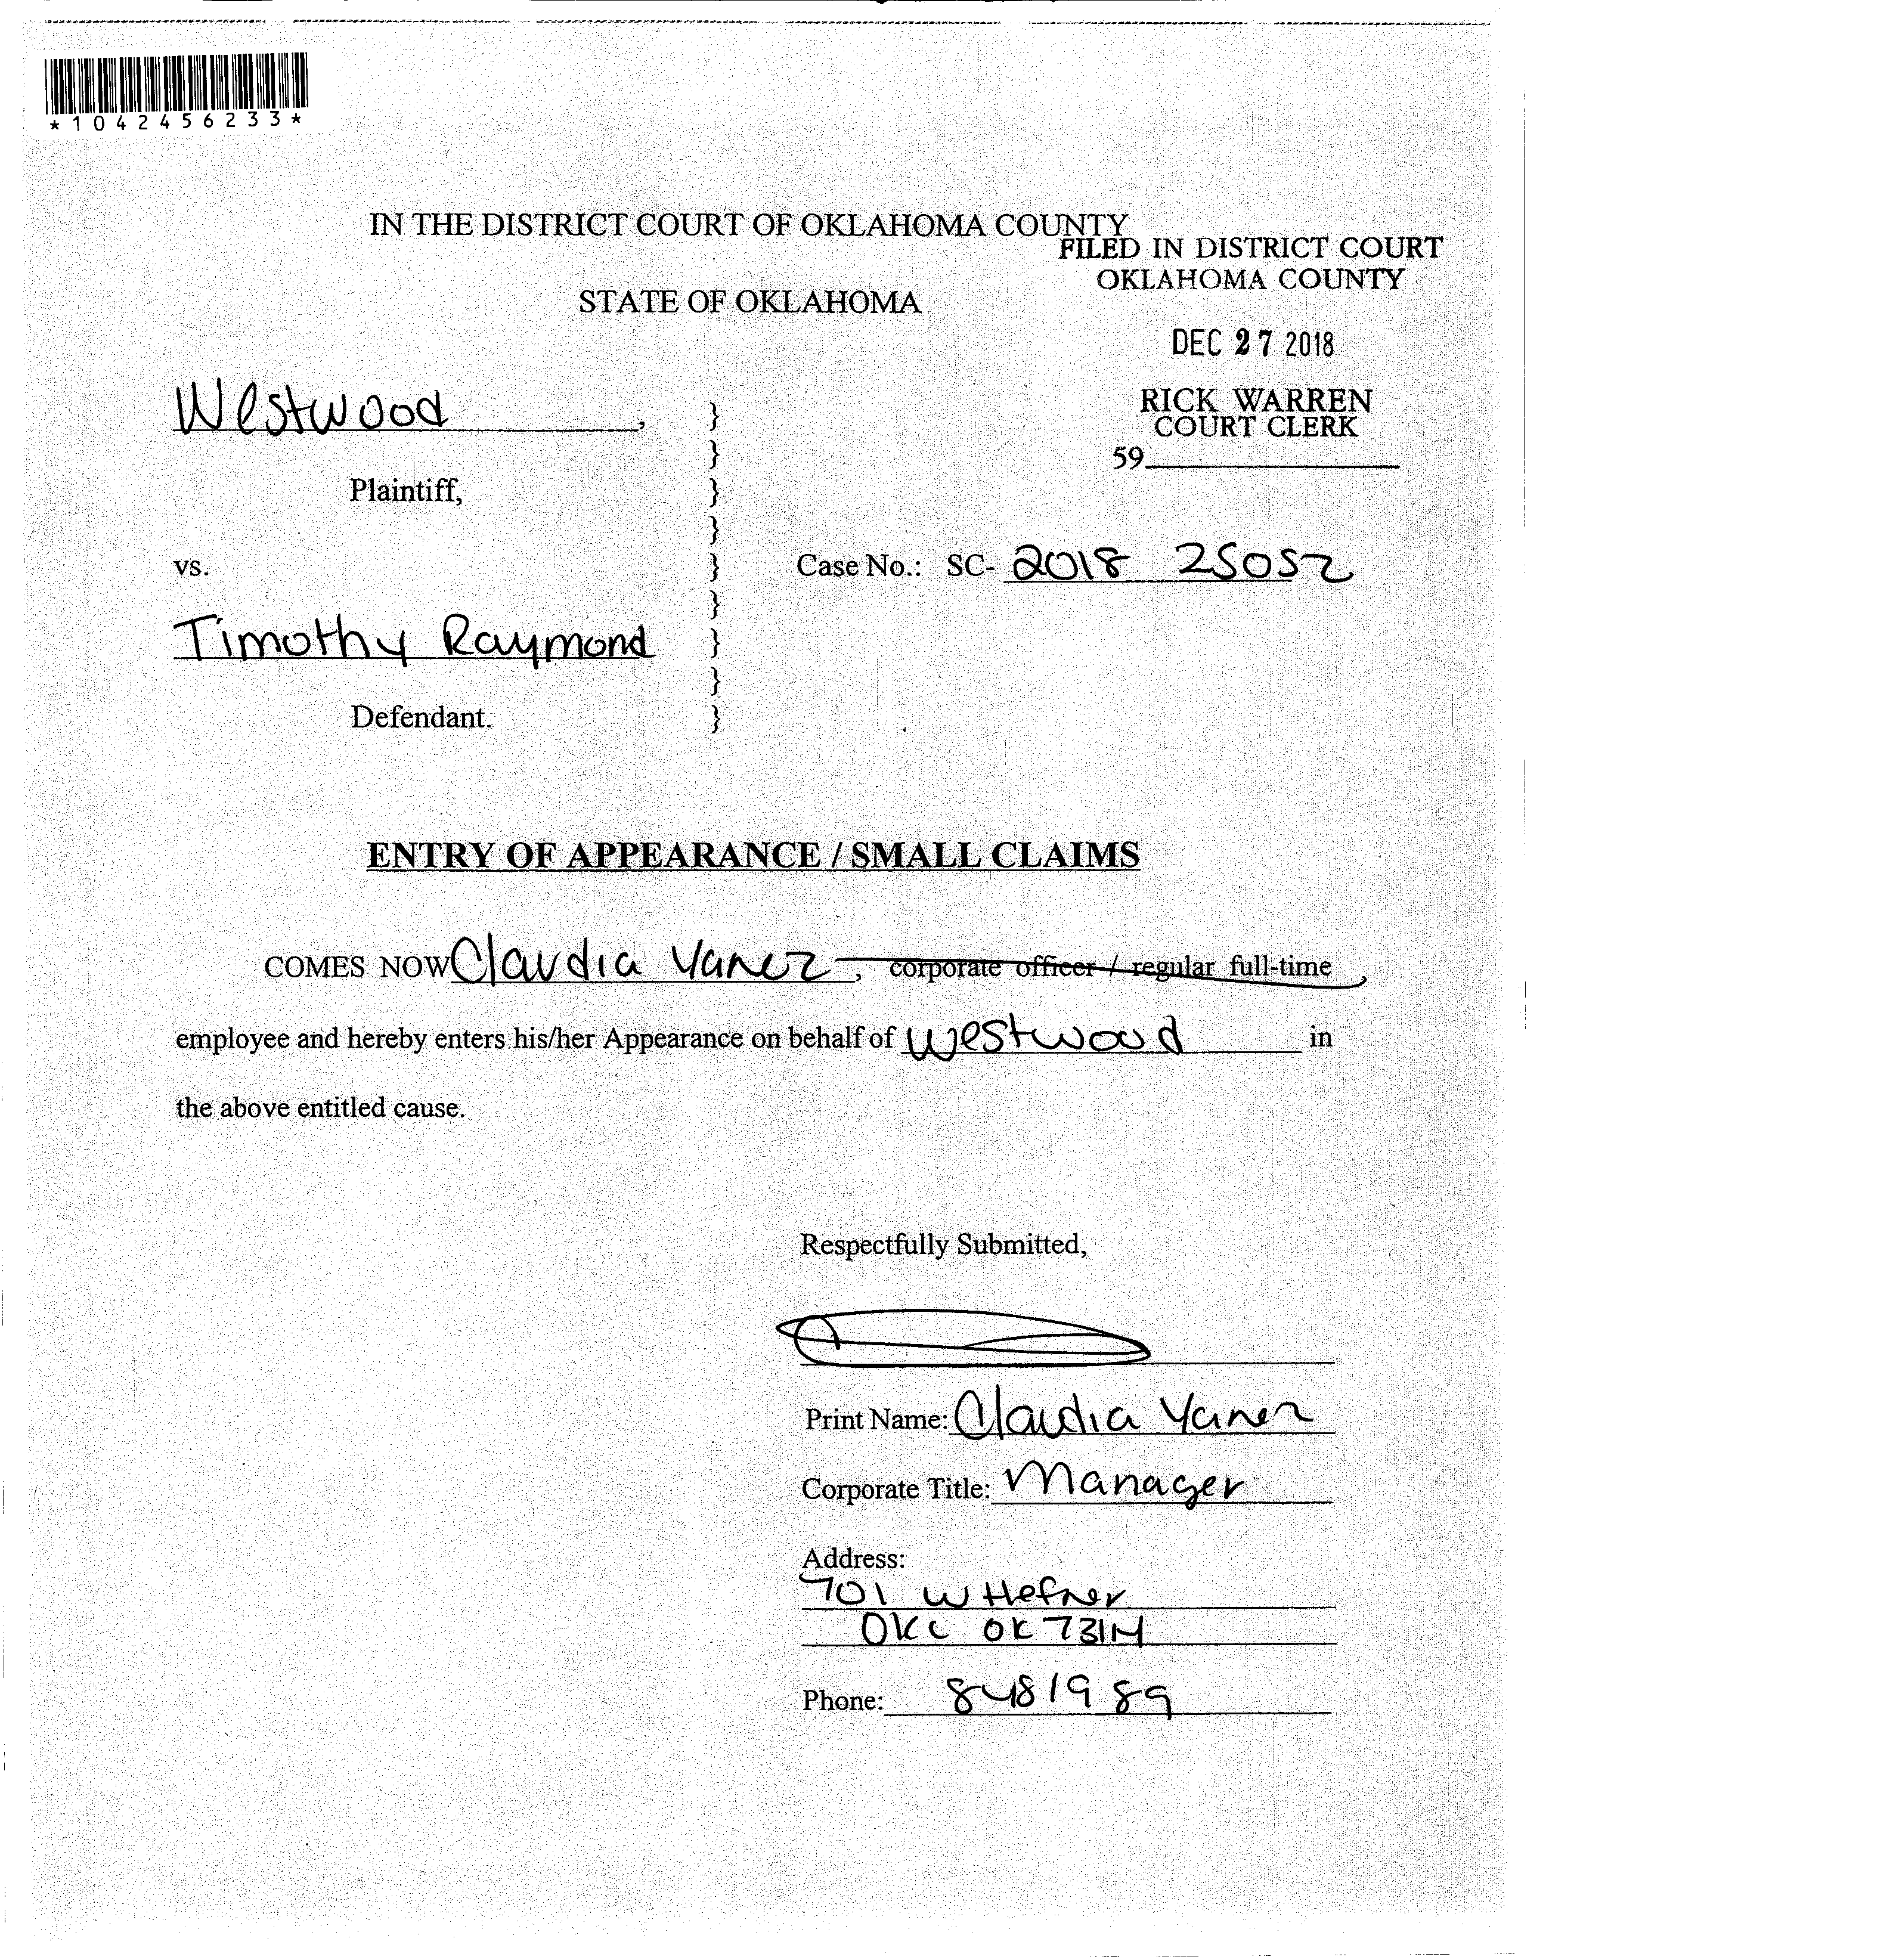 *1042456233*
IN THE DISTRICT COURT OF OKLAHOMA COUNTY
FILED IN DISTRICT COURT
OKLAHOMA COUNTY
STATE OF OKLAHOMA
DEC 27 2018
RICK WARREN
COURT CLERK
59
Westwood,
Plaintiff,
vs.
Case No.: SC- 2018 25052
Timothy Raymond
Defendant.
ENTRY OF APPEARANCE / SMALL CLAIMS
COMES NOW Claudia Yanez, corporate officer / regular full-time
employee and hereby enters his/her Appearance on behalf of Westwood in
the above entitled cause.
Respectfully Submitted,
Print Name: Claudia Yanez
Corporate Title: Manager
Address:
701 W Hefner
OKC OK 73114
Phone: 8481989